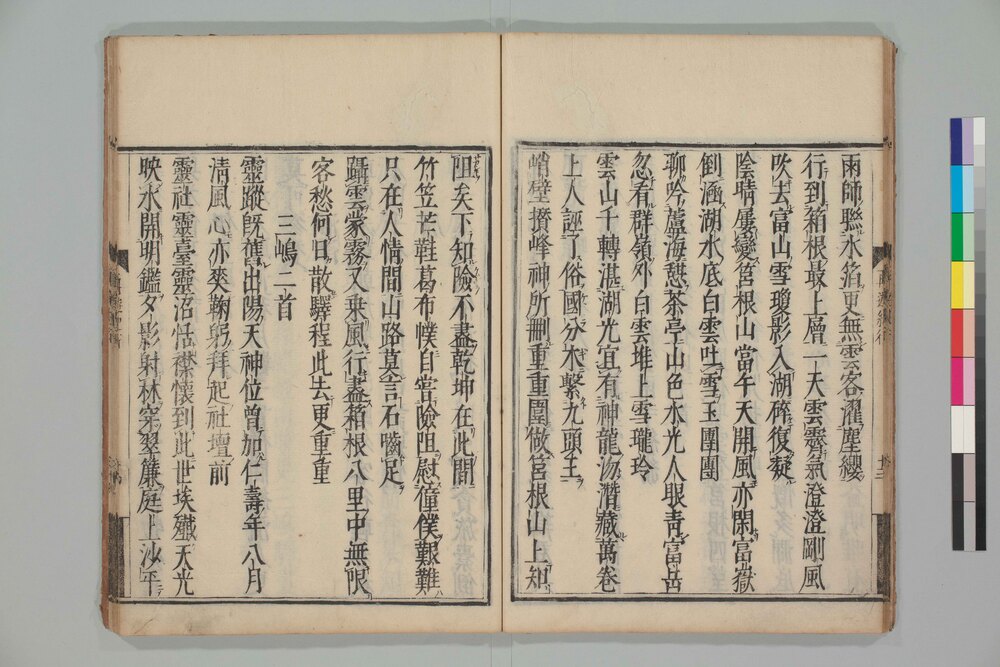 雨師驂水箔更無雲客濯塵纓
行到箱根最上層一天雲霽氣澄澄剛風
吹去富山雪瓊影入湖碎復凝
陰晴屢變筥根山當午天開風亦閑富嶽
倒涵湖水底白雲吐雪玉團團
聊吟蘆海憩茶亭山色水光人眼青富岳
忽看群嶺外白雲堆上雪瓏玲
雲山千轉湛湖光宜有神龍沕潛藏萬卷
上人誣了俗國分水繫九頭王
峭壁攅峰神所刪重重圍做筥根山上知
阻矣下知險不盡乾坤在此間
竹笠芒鞋葛布幞自嘗險阻慰僮僕艱難
只在人情間山路莫言石嚙足
躡雲蒙霧又乘風行盡箱根八里中無限
客愁何日散驛程此去更重重
三嶋二首
靈蹤既舊出陽天神位曾加仁壽年八月
清風心亦爽鞠躬拜起社壇前
靈社靈臺靈沼恬襟懷到此世埃殲天光
映水開明鑑夕影射林穿翠簾庭上沙平